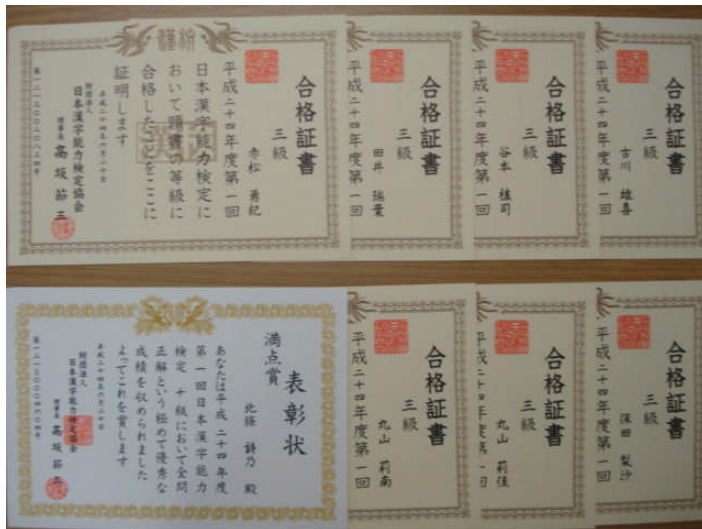 合格証書
三級
赤松 勇紀
平成二十四年度第一回
日本漢字能力検定に
おいて頭書の等級に
合格したことをここに
証明します
平成二十四年六月二十日
財団法人
日本漢字能力検定協会
理事長 高坂 節三
合格証書
三級
田井 瑞葉
平成二十四年度第一回
合格証書
三級
谷本 植司
平成二十四年度第一回
合格証書
三級
古川 雄喜
平成二十四年度第一回
表彰状
満点賞
北條 詩乃 殿
あなたは平成二十四年度
第一回日本漢字能力
検定 十級において全問
正解という極めて優秀な
成績を収められました
よってこれを賞します
平成二十四年六月二十日
財団法人
日本漢字能力検定協会
理事長 高坂 節三
合格証書
三級
丸山 莉南
平成二十四年度第一回
合格証書
三級
丸山 莉佳
平成二十四年度第一回
合格証書
三級
深田 梨沙
平成二十四年度第一回